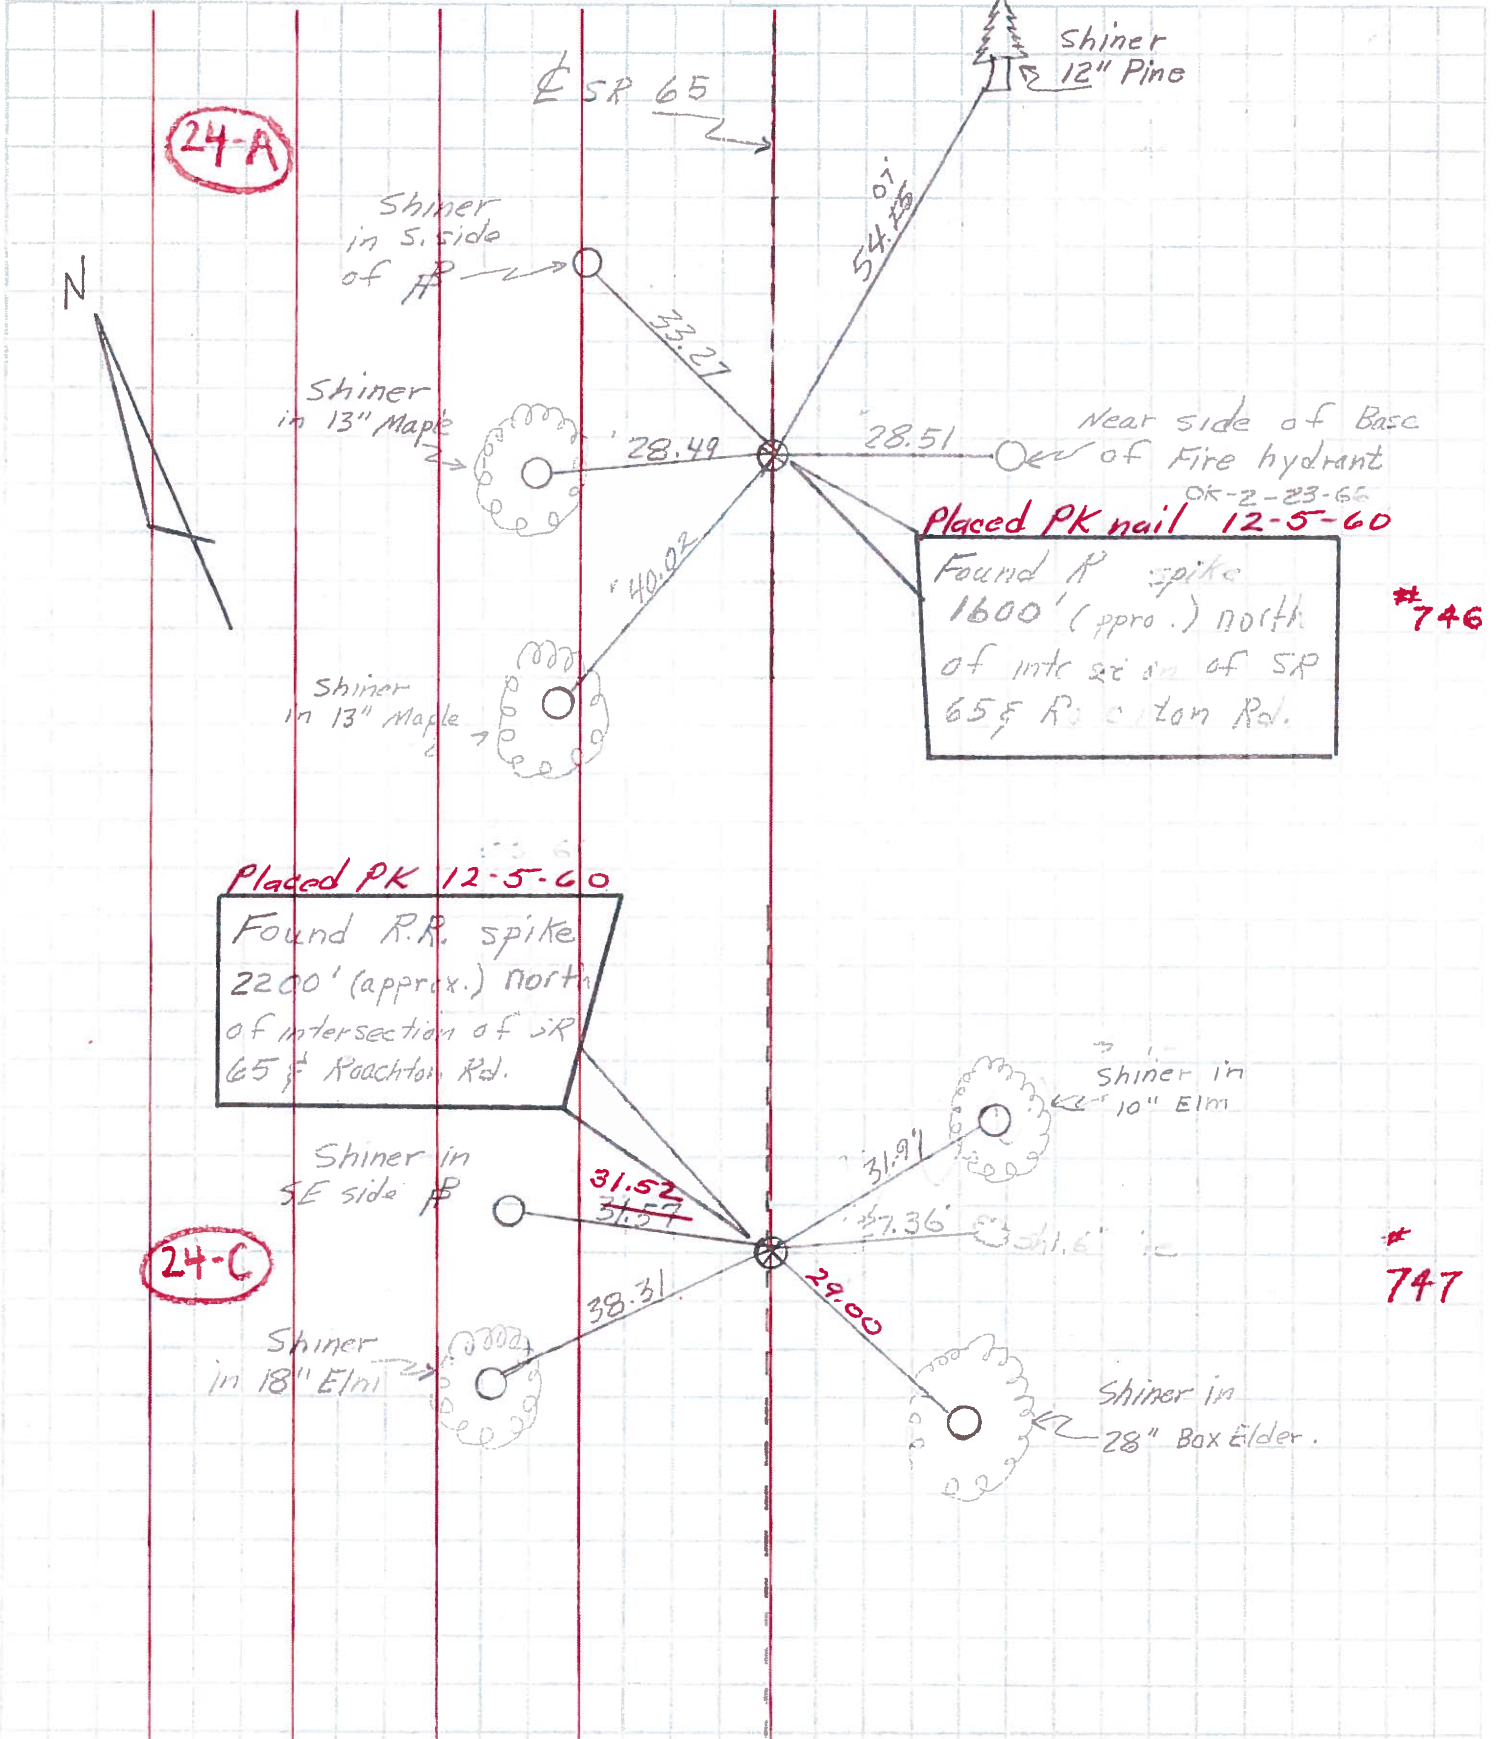 Shiner
12" Pine
℄ SR 65
24-A
Shiner
in S. side
of PP
N
07
54.
33.27
Shiner
in 13" Maple
28.49
28.51
Near side of Base
of Fire hydrant
OK-2-23-66
Placed PK nail 12-5-60
Found spike
1600' (ppro.) north
of of SR
65 & Rd.
#746
40.02
Shiner
in 13" Maple
Placed PK 12-5-60
Found R.R. spike
2200' (approx.) north
of intersection of SR
65 & Roachton Rd.
Shiner in
10" Elm
31.91
Shiner in
SE side PP
31.52
31.57
7.36
24-C
#
747
29.00
38.31
Shiner
in 18" Elm
Shiner in
28" Box Elder.